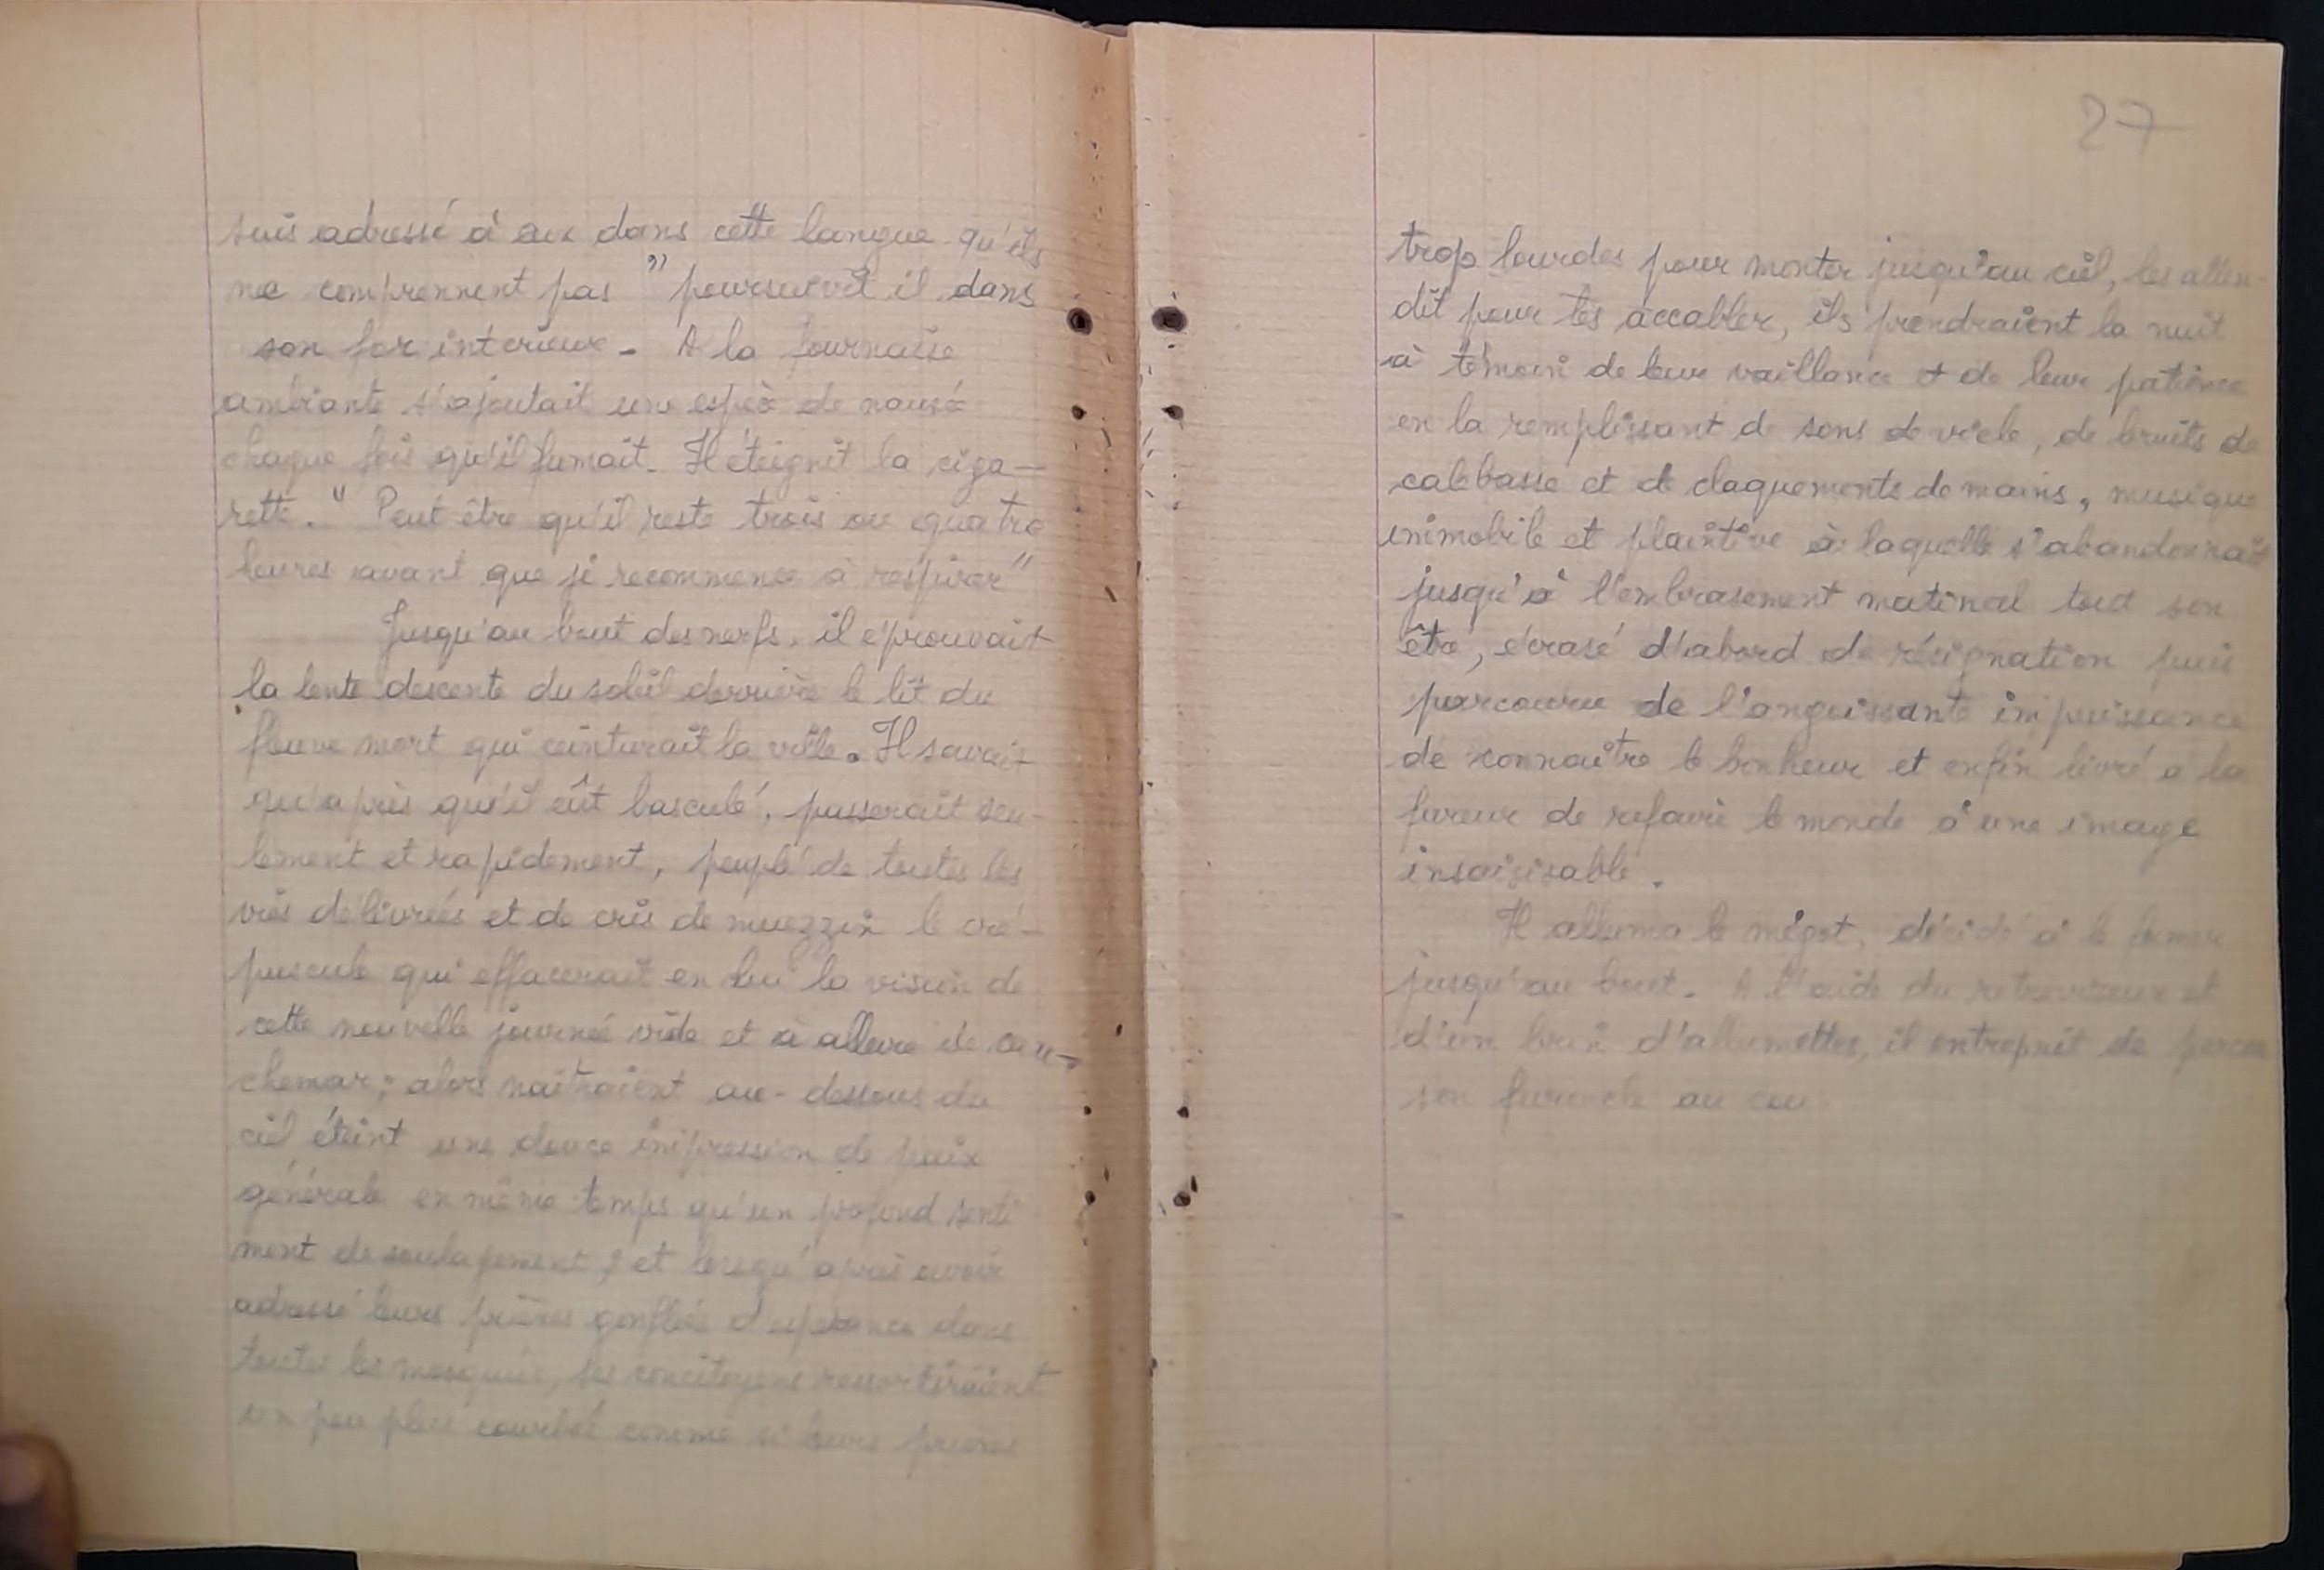 suis adressé à eux dans cette langue qu'ils
ne comprennent pas " poursuivit il dans
son for interieur - A la fournaise
ambiante s'ajoutait une espèce de nausée
chaque fois qu'il fumait. Il éteignit la ciga-
rette. " Peut être qu'il reste trois ou quatre
heures avant que je recommence à respirer"
Jusqu'au bout des nerfs, il éprouvait
la lente descente du soleil derrière le lit du
fleuve mort qui ceinturait la ville. Il savait
qu'après qu'il eût basculé, passerait seu-
lement et rapidement, peuplé de toutes les
vies délivrées et de cris de muezzin le cré-
puscule qui effacerait en lui la vision de
cette nouvelle journée vide et à allure de cau-
chemar; alors naîtraient au-dessous du
ciel éteint une douce impression de paix
générale en même temps qu'un profond senti
ment de soulagement, et lorsqu'après avoir
adressé leurs prières gonflées d'espérance dans
toutes les mosquées, ses concitoyens ressortiraient
un peu plus courbés comme si leurs prières
27
trop lourdes pour monter jusqu'au ciel, les atten-
dît pour les accabler, ils prendraient la nuit
à témoin de leur vaillance et de leur patience
en la remplissant de sons de viele, de bruits de
calebasse et de claquements de mains, musique
immobile et plaintive à laquelle s'abandonnait
jusqu'à l'embrasement matinal tout son
être, écrasé d'abord de résignation puis
parcouru de l'angoissante impuissance
de connaître le bonheur et enfin livré à la
fureur de refaire le monde à une image
insaisisable.
Il alluma le mégot, décidé à le fumer
jusqu'au bout. A l'aide du retroviseur et
d'un brin d'allumettes, il entreprit de percer
son furoncle au cou